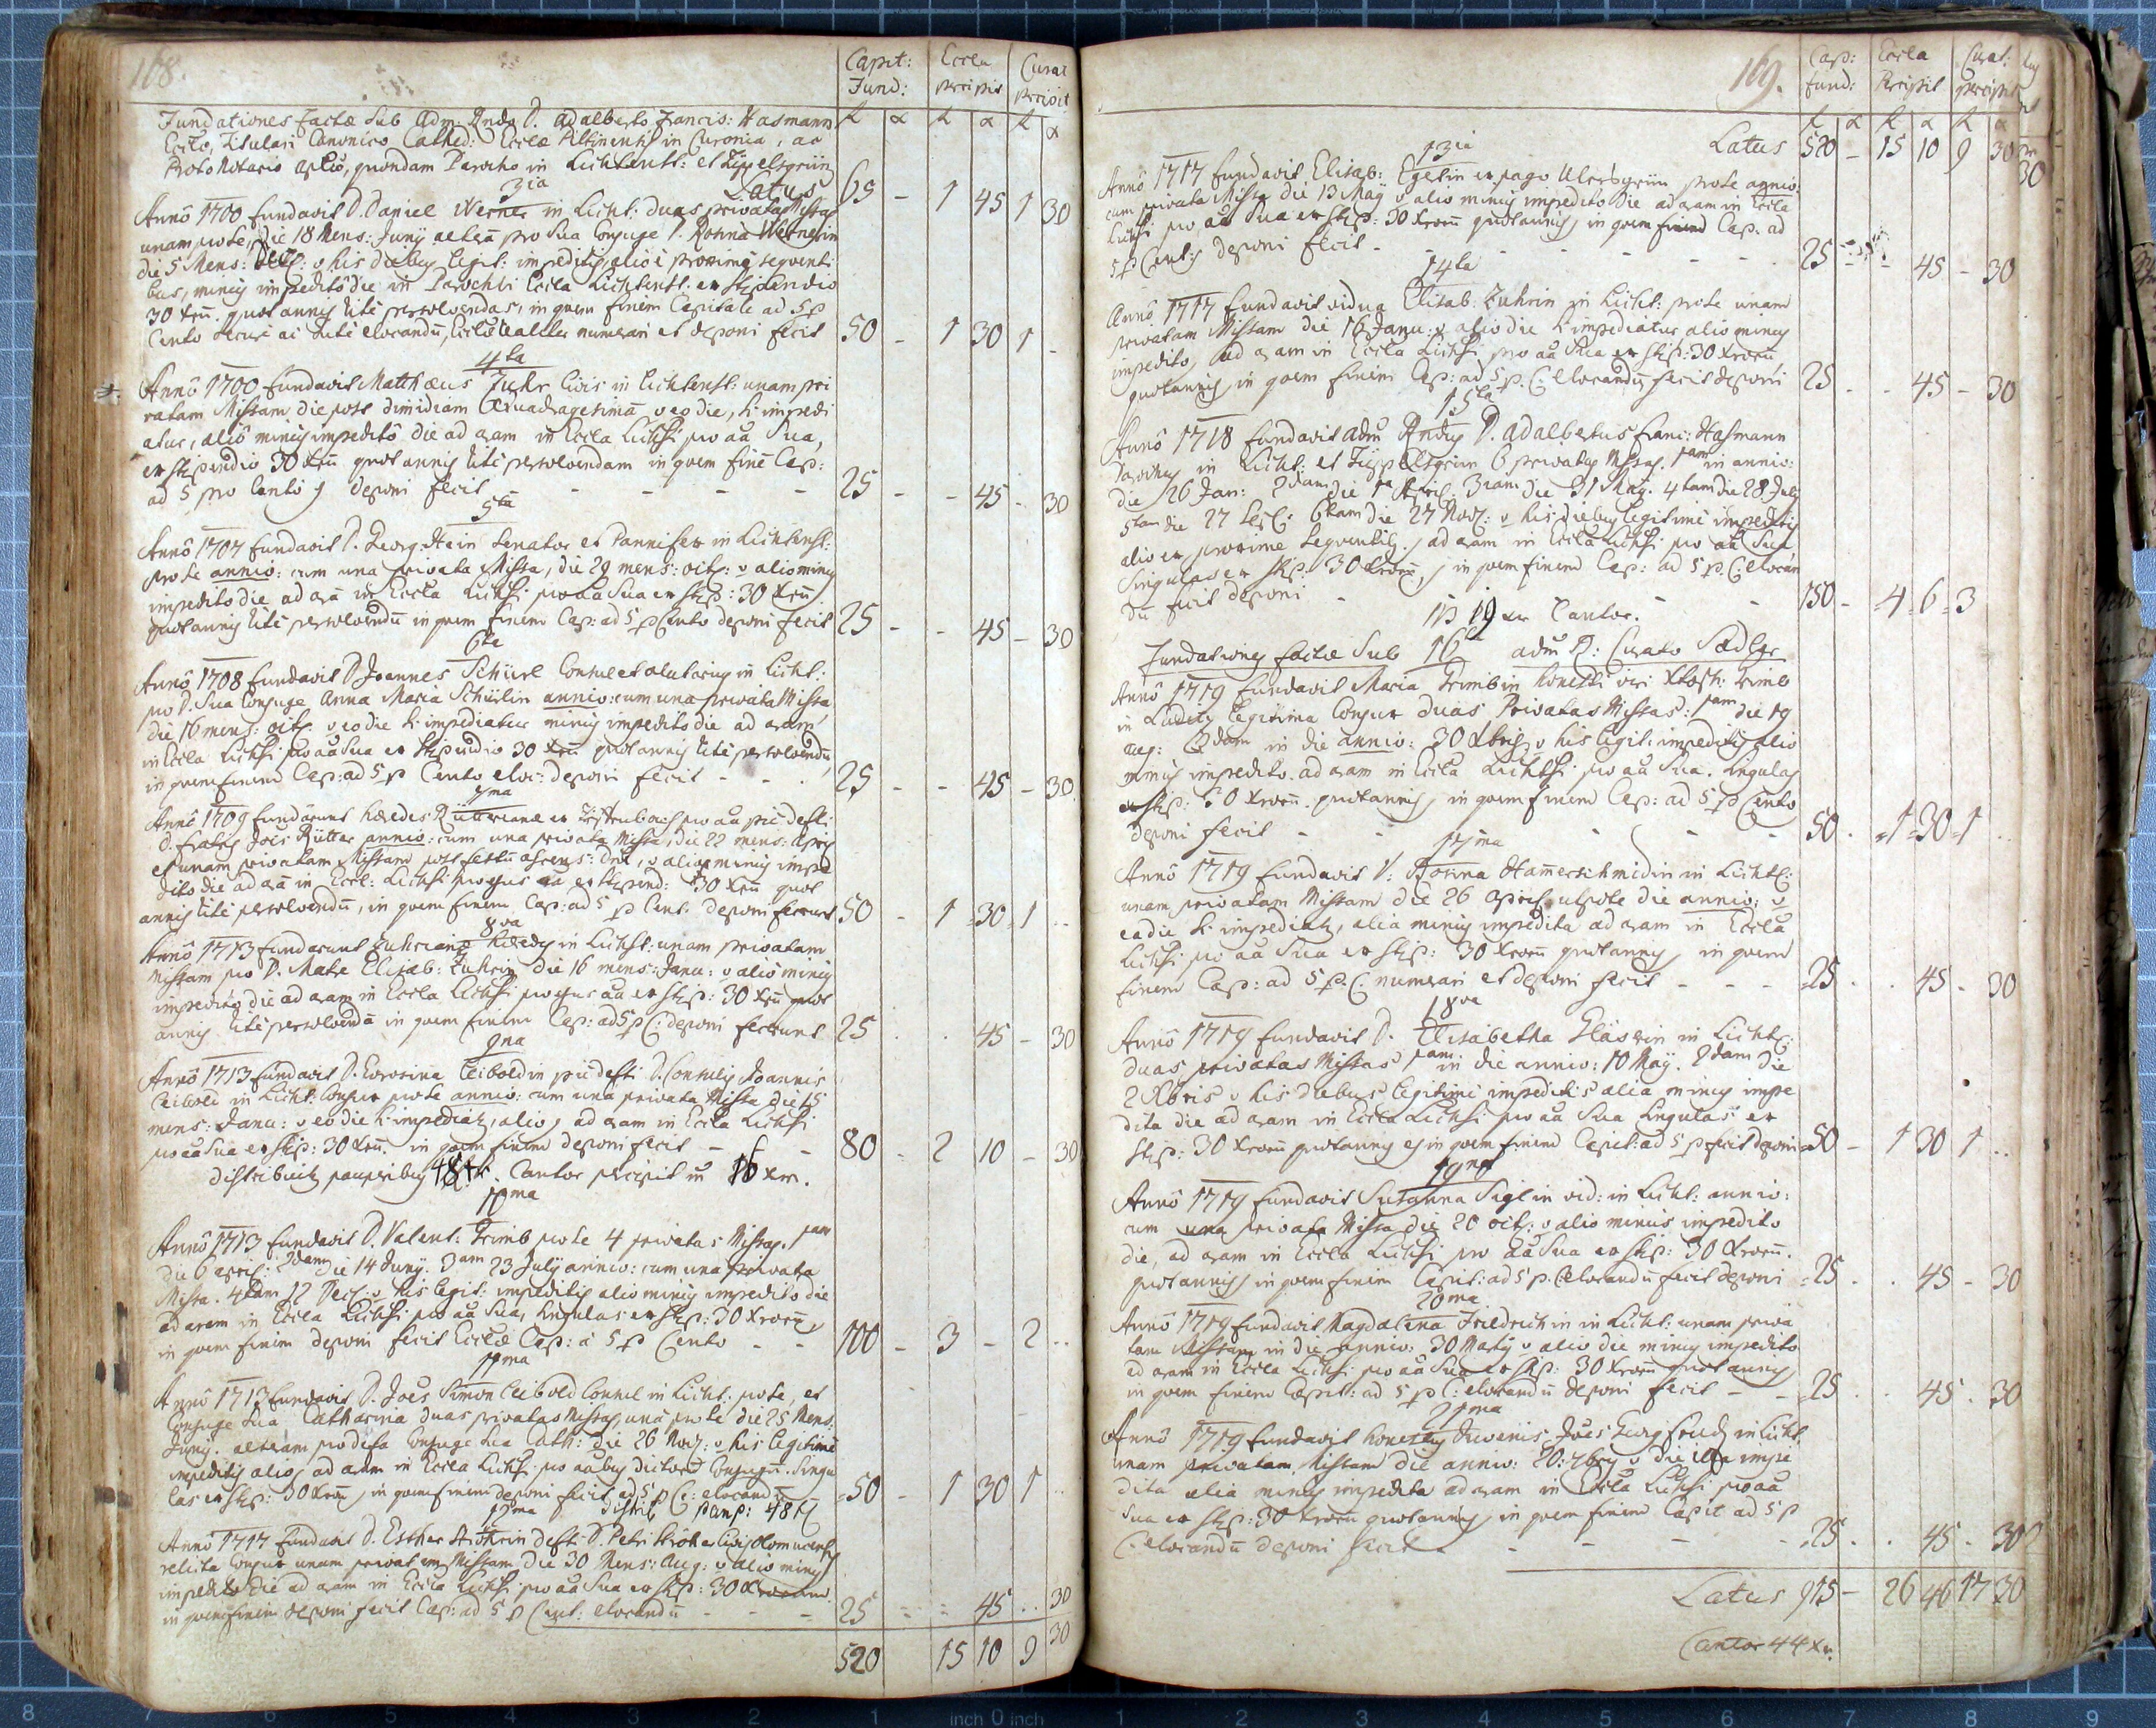 168.
Capit: Fund: Eccla percipit Curat percipit
Fundationes factæ sub Adm: Rndo D. Adalberto Francis: Hasmann
Eccto, Titulari Canonico Cathed: Ecclæ Piltinensis in Curonia, ac
Protonotario Aplico, quondam Parocho in Lichtenst: et Zippelsgrün
Latus 65 - 1 45 1 30
3ia
Annô 1700 fundavit D. Daniel Werner in Licht: duas privatas Missas
unam pro se, die 18 Mens: Junij alterã pro Sua Conjuge V. Rosina Wernerin
die 5 Mens: v his diebus legit: impeditis, alio i proxime sequenti
bus, minus impedito die in Parochli Eccla Lichtenst. ex stipendio
30 Xrū. quotannis rite persolvendas, in quem finem Capitale ad 5 p
Cento secure ac rite elocandū, numerari et deponi fecit 50 - 1 30 1 -
4ta
Annô 1700 fundavit Matthæus Fuhr Civis in Lichtenst: unam pri
vatam Missam die post dimidiam Quadragesimā v eo die, si impedi
atur, aliô minus impeditô die ad aram in Eccla Lichsi pro aã Sua,
ex stipendio 30 Xrū quotannis rite persolvendam in quem finē Cap:
ad 5 pro Cento deponi fecit - - - - 25 - - 45 - 30
5ta
Annô 1707 fundavit D. Georg: Hein Senator et Pannifex in Lichtenst:
pro se annivo: cum una privata Missa, die 29 mens: octb: v alio minus
impedito die ad arã in Eccla Lichsi pro aã Sua ex stip: 30 Xrū
quotannis rite persolvendū in quem finem Cap: ad 5 p Cento deponi fecit 25 - - 45 - 30
6ta
Annô 1708 fundavit D Joannes Schürl Consul et alutarius in Licht:
pro D. Sua Conjuge Anna Maria Schürlin annivo: cum una privata Missa
die 16 mens: octb v eo die si impediatur minus impedito die ad aram
in Eccla Lichsi pro aã Sua ex stipendio 30 Xrū quotannis rite persolvendū,
in quem finem Cap: ad 5 p Cento eloc: deponi fecit - - 25 - - 45 - 30
7ma
Annô 1709 fundârunt hæredes Rüttrianæ ex pro aã pie defti
D. fratris Joes Rütter annivo: cum una privata Missa, die 22 mens: Apris
et unam privatam Missam post festū v alio minus impe
dito die ad arã in Eccl: Lichsi pro ejus aã ex stipend: 30 Xrū quot
annis rite persolvendū, in quem finem Cap: ad 5 p Cent: deponi fecerunt 50 - 1 30 1 ..
8va
Annô 1713 fundarunt Fuhrianæ hæredes in Lichst: unam privatam
Missam pro D. Matre Elisab: Fuhrin die 16 mens: Janu: v aliô minus
impedito die ad aram in Eccla Lichsi pro ejus aã ex stip: 30 Xrū quot
annis rite persolvendã in quem finem Cap: ad 5 p C: deponi fecerunt 25 . . 45 - 30
9na
Annô 1713 fundavit D. Leiboldin pie defti D. Consulis Joannis
Leibold in Licht: Conjux pro se annivo: cum una privata Missa die 15
mens: Janu: v eo die si impediatur, alio, ad aram in Eccla Lichsi
pro aã Sua ex stip: 30 Xrū. in quem finem deponi fecit - - - 80 - 2 10 - 30
distribuitr pauperibus 48 Xr. Cantor percipit 16 Xr.
10ma
Annô 1713 fundavit D. Valent: Trimb pro se 4 privatas Missas. 1am
die 6 April: 2dam die 14 Junij. 3am 23 Julij annivo: cum una privata
Missa. 4tam 12 Decb: v his legit: impeditis alio minus impedito die
ad aram in Eccla Lichsi pro aã Sua, singulas ex stip: 30 Xrorū,
in quem finem deponi fecit Ecclæ Cap: à 5 p Cento - - 100 - 3 - 2 ..
11ma
Annô 1713 fundavit D. Joes Simon Leibold Consul in Licht: pro se, et
Conjuge Sua Catharina duas privatas Missas, unã pro se die 25 Mens.
Junij. alteram pro dicta Conjuge Sua Cath: die 26 Nov: v his legitime
impeditis alio, ad aram in Eccla Lichsi pro aabus dictorū Conjugū. Singu
las ex stip: 30 Xrorū, in quem finem deponi fecit ad 5 p C: elocandū 50 - 1 30 1 ..
distrib paup: 48 X
12ma
Annô 1717 fundavit D. Esther Ströhrin defti D. Petri Ströher Civis Olomucensis
relicta Conjux unam privatam Missam die 30 Mens: Aug: v alio minus
impedito die ad aram in Eccla Lichsi pro aã Sua ex stip: 30 Xrorum
in quem finem deponi fecit Cap: ad 5 p Cent: elocandū - - - 25 - - 45 .. 30
520 15 10 9 30
169.
Cap: fund: Eccla Percipit Curat: percipit
Latus 520 - 15 10 9 30
13ia
Annô 1717 fundavit Elisab: Egerin ex pago Ulersgrün pro se annivo:
cum privata Missa die 13 Maij v alio minus impedito die ad aram in Eccla
Lichsi pro aã Sua ex stip: 30 Xrorū quotannis, in quem finem Cap. ad
5 p Centis deponi fecit - - - - 25 - - 45 - 30
14ta
Annô 1717 fundavit vidua Elisab: Fuhrin in Licht: pro se unam
privatam Missam die 16 Janu: v alio die si impediatur alio minus
impedito, ad aram in Eccla Lichsi pro aã Sua ex stip: 30 Xrorū,
quotannis, in quem finem Cap: ad 5 p. C: elocandū fecit deponi 25 - - 45 - 30
15ta
Annô 1718 fundavit Adm Rndus D. Adalbertus Franc: Hasmann
Parochus in Licht: et Zippelsgrün 6 privatas Missas. 1am in annivo:
die 26 Jan: 2dam die 1a April. 3iam die 31 Maij. 4tam die 28 Julij
5tam die 27 Sept: 6tam die 27 Nov: v his diebus legitime impeditis
alio ex proxime sequentib, ad aram in Eccla Lichsi pro aã Sua
Singulas ex stip: 30 Xrorū, in quem finem Cap: ad 5 p. C: elocan
dū fecit deponi - - - 150 - 4 6 3
19 xr Cantor.
Fundationes factæ Sub 16 adm R: Curato Sædler
Annô 1719 fundavit Maria Trimbin honesti viri Xtoph: Trimb
in Luditz legitima Conjux duas Privatas Missas: 1am die 19
Aug: 2dam in die annivo: 30 Xbris v his legit: impeditis alio
minus impedito ad aram in Eccla Lichtsi pro aã Sua. singulas
ex stip: 30 Xrorū. quotannis, in quem finem Cap: ad 5 p Cento
deponi fecit - - - - 50 . 1 30 1 ..
17ma
Annô 1719 fundavit V: Rosina Hamerschmidin in Lichtst:
unam privatam Missam die 26 April. utpote die annivo: v
ea die si impediatr, alia minus impedita ad aram in Eccla
Lichsi pro aã Sua ex stip: 30 Xrorū quotannis, in quem
finem Cap: ad 5 p. C: numerari et deponi fecit - - - 25 . . 45 - 30
18va
Annô 1719 fundavit D. Elisabetha Gläserin in Lichtst:
duas privatas Missas 1am in die annivo: 10 Maij. 2dam die
2 Xbris v his diebus legitime impeditis alia minus impe
dita die ad aram in Eccla Lichsi pro aã Sua singulas ex
stip: 30 Xrorū quotannis et in quem finem Capit: ad 5 p fecit deponi 50 - 1 30 1 ..
19na
Annô 1719 fundavit Susanna Siglin vid: in Licht: annivo:
cum una privata Missa die 20 octb: v alio minus impedito
die, ad aram in Eccla Lichsi pro aã Sua ex stip: 30 Xrorū.
quotannis, in quem finem Capit: ad 5 p. C elocandū fecit deponi 25 . . 45 - 30
20ma
Annô 1719 fundavit Magdalena Friedrichin in Licht: unam priva
tam Missam in die annivo: 30 Martij v alio die minus impedito
ad aram in Eccla Lichsi pro aã Sua ex stip: 30 Xrorū quotannis
in quem finem Capit: ad 5 p C: elocandū deponi fecit - - 25 . . 45 . 30
21ma
Annô 1719 fundavit honestus Juvenis Joes Georg in Licht.
unam privatam Missam die annivo: 20. 7bris v die illa impe
dita alia minus impedita ad aram in Eccla Lichsi pro aã
Sua ex stip: 30 Xrorū quotannis, in quem finem Capit ad 5 p
C. elocandū deponi fecit - - - - 25 . . 45 - 30
Latus 915 - 26 46 17 30
Cantor 44 Xr.